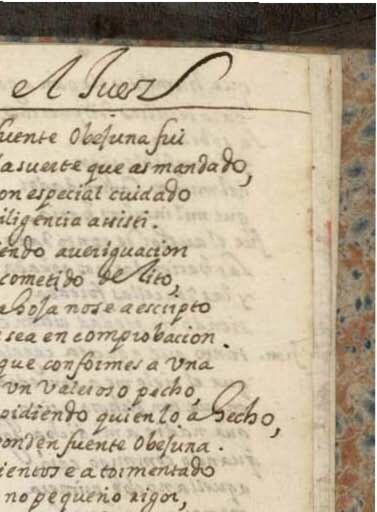 el Juez
fuente Obejuna fui
la suerte que as mandado,
on especial cuidado
iligencia assisti.
endo aueriguacion
cometido delito,
a hoja no se a escripto
sea en comprobacion.
que conformes a Vna
vn valeroso pecho,
pidiendo quien lo a hecho,
ponden fuente Obejuna.
ientos e atormentado
no pequeño rigor,